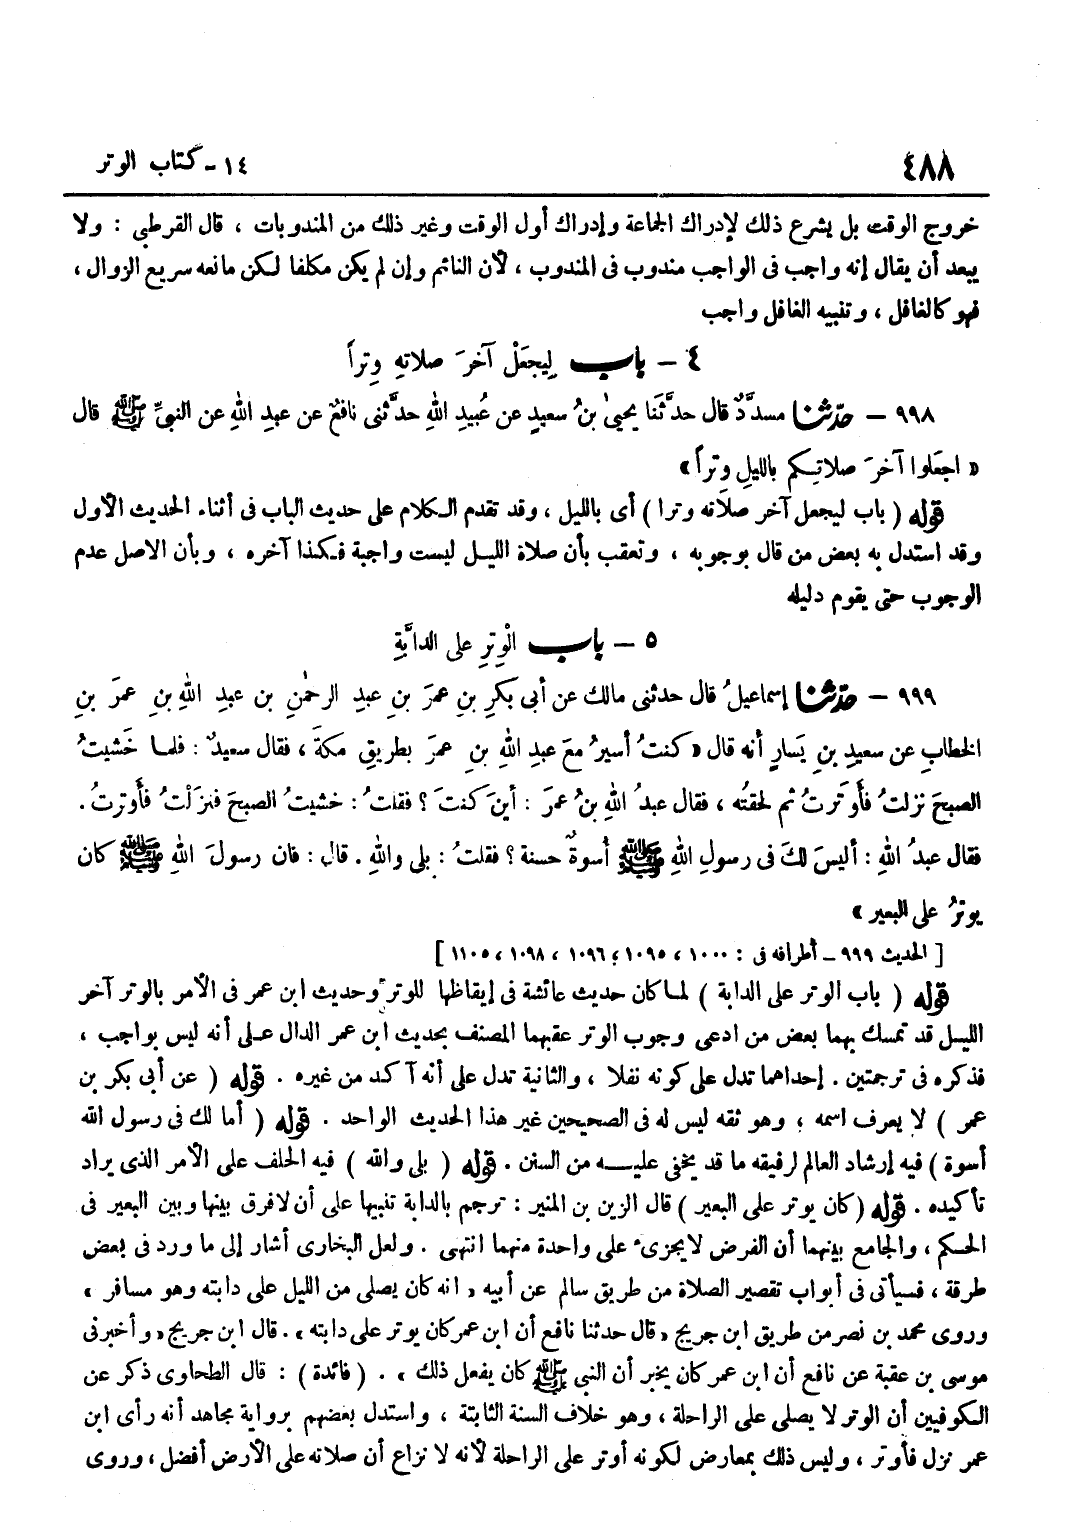 ٤٨٨
١٤ - كتاب الوتر
خروج الوقت بل يشرع ذلك لإدراك الجماعة وإدراك أول الوقت وغير ذلك من المندوبات ، قال القرطبي : ولا
يبعد أن يقال إنه واجب فى الواجب مندوب فى المندوب ، لأن النائم وإن لم يكن مكلفا لكن مانعه سريع الزوال ،
فهو كالغافل ، وتنبيه الغافل واجب
٤ - باب لِيجعَلْ آخرَ صلاتهِ وِتراً
٩٩٨ - حدّثنا مسدَّدٌ قال حدَّثَنا يحيىٰ بنُ سعيدٍ عن عُبيدِ اللهِ حدَّثنى نافعٌ عن عبدِ اللهِ عن النبيِّ ﷺ قال
« اجعَلوا آخرَ صلاتِكم بالليلِ وِتراً »
قوله ( باب ليجعل آخر صلاته وترا ) أى بالليل ، وقد تقدم الكلام على حديث الباب فى أثناء الحديث الأول
وقد استدل به بعض من قال بوجوبه ، وتعقب بأن صلاة الليل ليست واجبة فكذا آخره ، وبأن الاصل عدم
الوجوب حتى يقوم دليله
٥ - باب الْوِترِ على الدابَّةِ
٩٩٩ - حدّثنا إسماعيلُ قال حدثنى مالك عن أبى بكرِ بنِ عمرَ بنِ عبدِ الرحمٰنِ بن عبدِ اللهِ بنِ عمرَ بنِ
الخطابِ عن سعيدِ بنِ يَسارٍ أنه قال « كنتُ أسيرُ معَ عبدِ اللهِ بنِ عمرَ بطريقِ مكةَ ، فقال سعيدٌ : فلما خَشيتُ
الصبحَ نزلتُ فأَوترتُ ثم لحقتُه ، فقال عبدُ اللهِ بنُ عمرَ : أينَ كنتَ ؟ فقلتُ : خشيتُ الصبحَ فنزَلْتُ فأَوترتُ .
فقال عبدُ اللهِ : أليسَ لكَ فى رسولِ اللهِ ﷺ أُسوةٌ حسنة ؟ فقلتُ : بلى واللهِ . قال : فان رسولَ اللهِ ﷺ كان
يوترُ على البعير »
[ الحديث ٩٩٩ - أطرافه فى : ١٠٠٠ ، ١٠٩٥ ، ١٠٩٦ ، ١٠٩٨ ، ١١٠٥ ]
قوله ( باب الوتر على الدابة ) لما كان حديث عائشة فى إيقاظها للوتر وحديث ابن عمر فى الأمر بالوتر آخر
الليل قد تمسك بهما بعض من ادعى وجوب الوتر عقبهما المصنف بحديث ابن عمر الدال على أنه ليس بواجب ،
فذكره فى ترجمتين . إحداهما تدل على كونه نفلا ، والثانية تدل على أنه آكد من غيره . قوله ( عن أبى بكر بن
عمر ) لا يعرف اسمه ، وهو ثقه ليس له فى الصحيحين غير هذا الحديث الواحد . قوله ( أما لك فى رسول الله
أسوة ) فيه إرشاد العالم لرفيقه ما قد يخفى عليه من السنن . قوله ( بلى والله ) فيه الحلف على الأمر الذى يراد
تأكيده . قوله ( كان يوتر على البعير ) قال الزين بن المنير : ترجم بالدابة تنبيها على أن لا فرق بينها وبين البعير فى
الحكم ، والجامع بينهما أن الفرض لا يجزىء على واحدة منهما انتهى . ولعل البخارى أشار إلى ما ورد فى بعض
طرقة ، فسيأتى فى أبواب تقصير الصلاة من طريق سالم عن أبيه « انه كان يصلى من الليل على دابته وهو مسافر »
وروى محمد بن نصر من طريق ابن جريج « قال حدثنا نافع أن ابن عمر كان يوتر على دابته » . قال ابن جريج « وأخبرنى
موسى بن عقبة عن نافع أن ابن عمر كان يخبر أن النبى ﷺ كان يفعل ذلك » . ( فائدة ) : قال الطحاوى ذكر عن
الكوفيين أن الوتر لا يصلى على الراحلة ، وهو خلاف السنة الثابتة ، واستدل بعضهم برواية مجاهد أنه رأى ابن
عمر نزل فأوتر ، وليس ذلك بمعارض لكونه أوتر على الراحلة لأنه لا نزاع أن صلاته على الأرض أفضل ، وروى